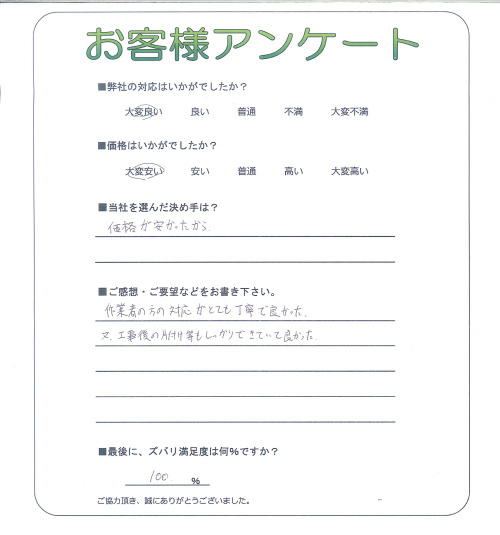 お客様アンケート
■弊社の対応はいかがでしたか？
大変良い 良い 普通 不満 大変不満
■価格はいかがでしたか？
大変安い 安い 普通 高い 大変高い
■当社を選んだ決め手は？
価格が安かったから.
■ご感想・ご要望などをお書き下さい。
作業者の方の対応がとても丁寧で良かった.
又、工事後の片付け等もしっかりできていて良かった.
■最後に、ズバリ満足度は何%ですか？
100 %
ご協力頂き、誠にありがとうございました。